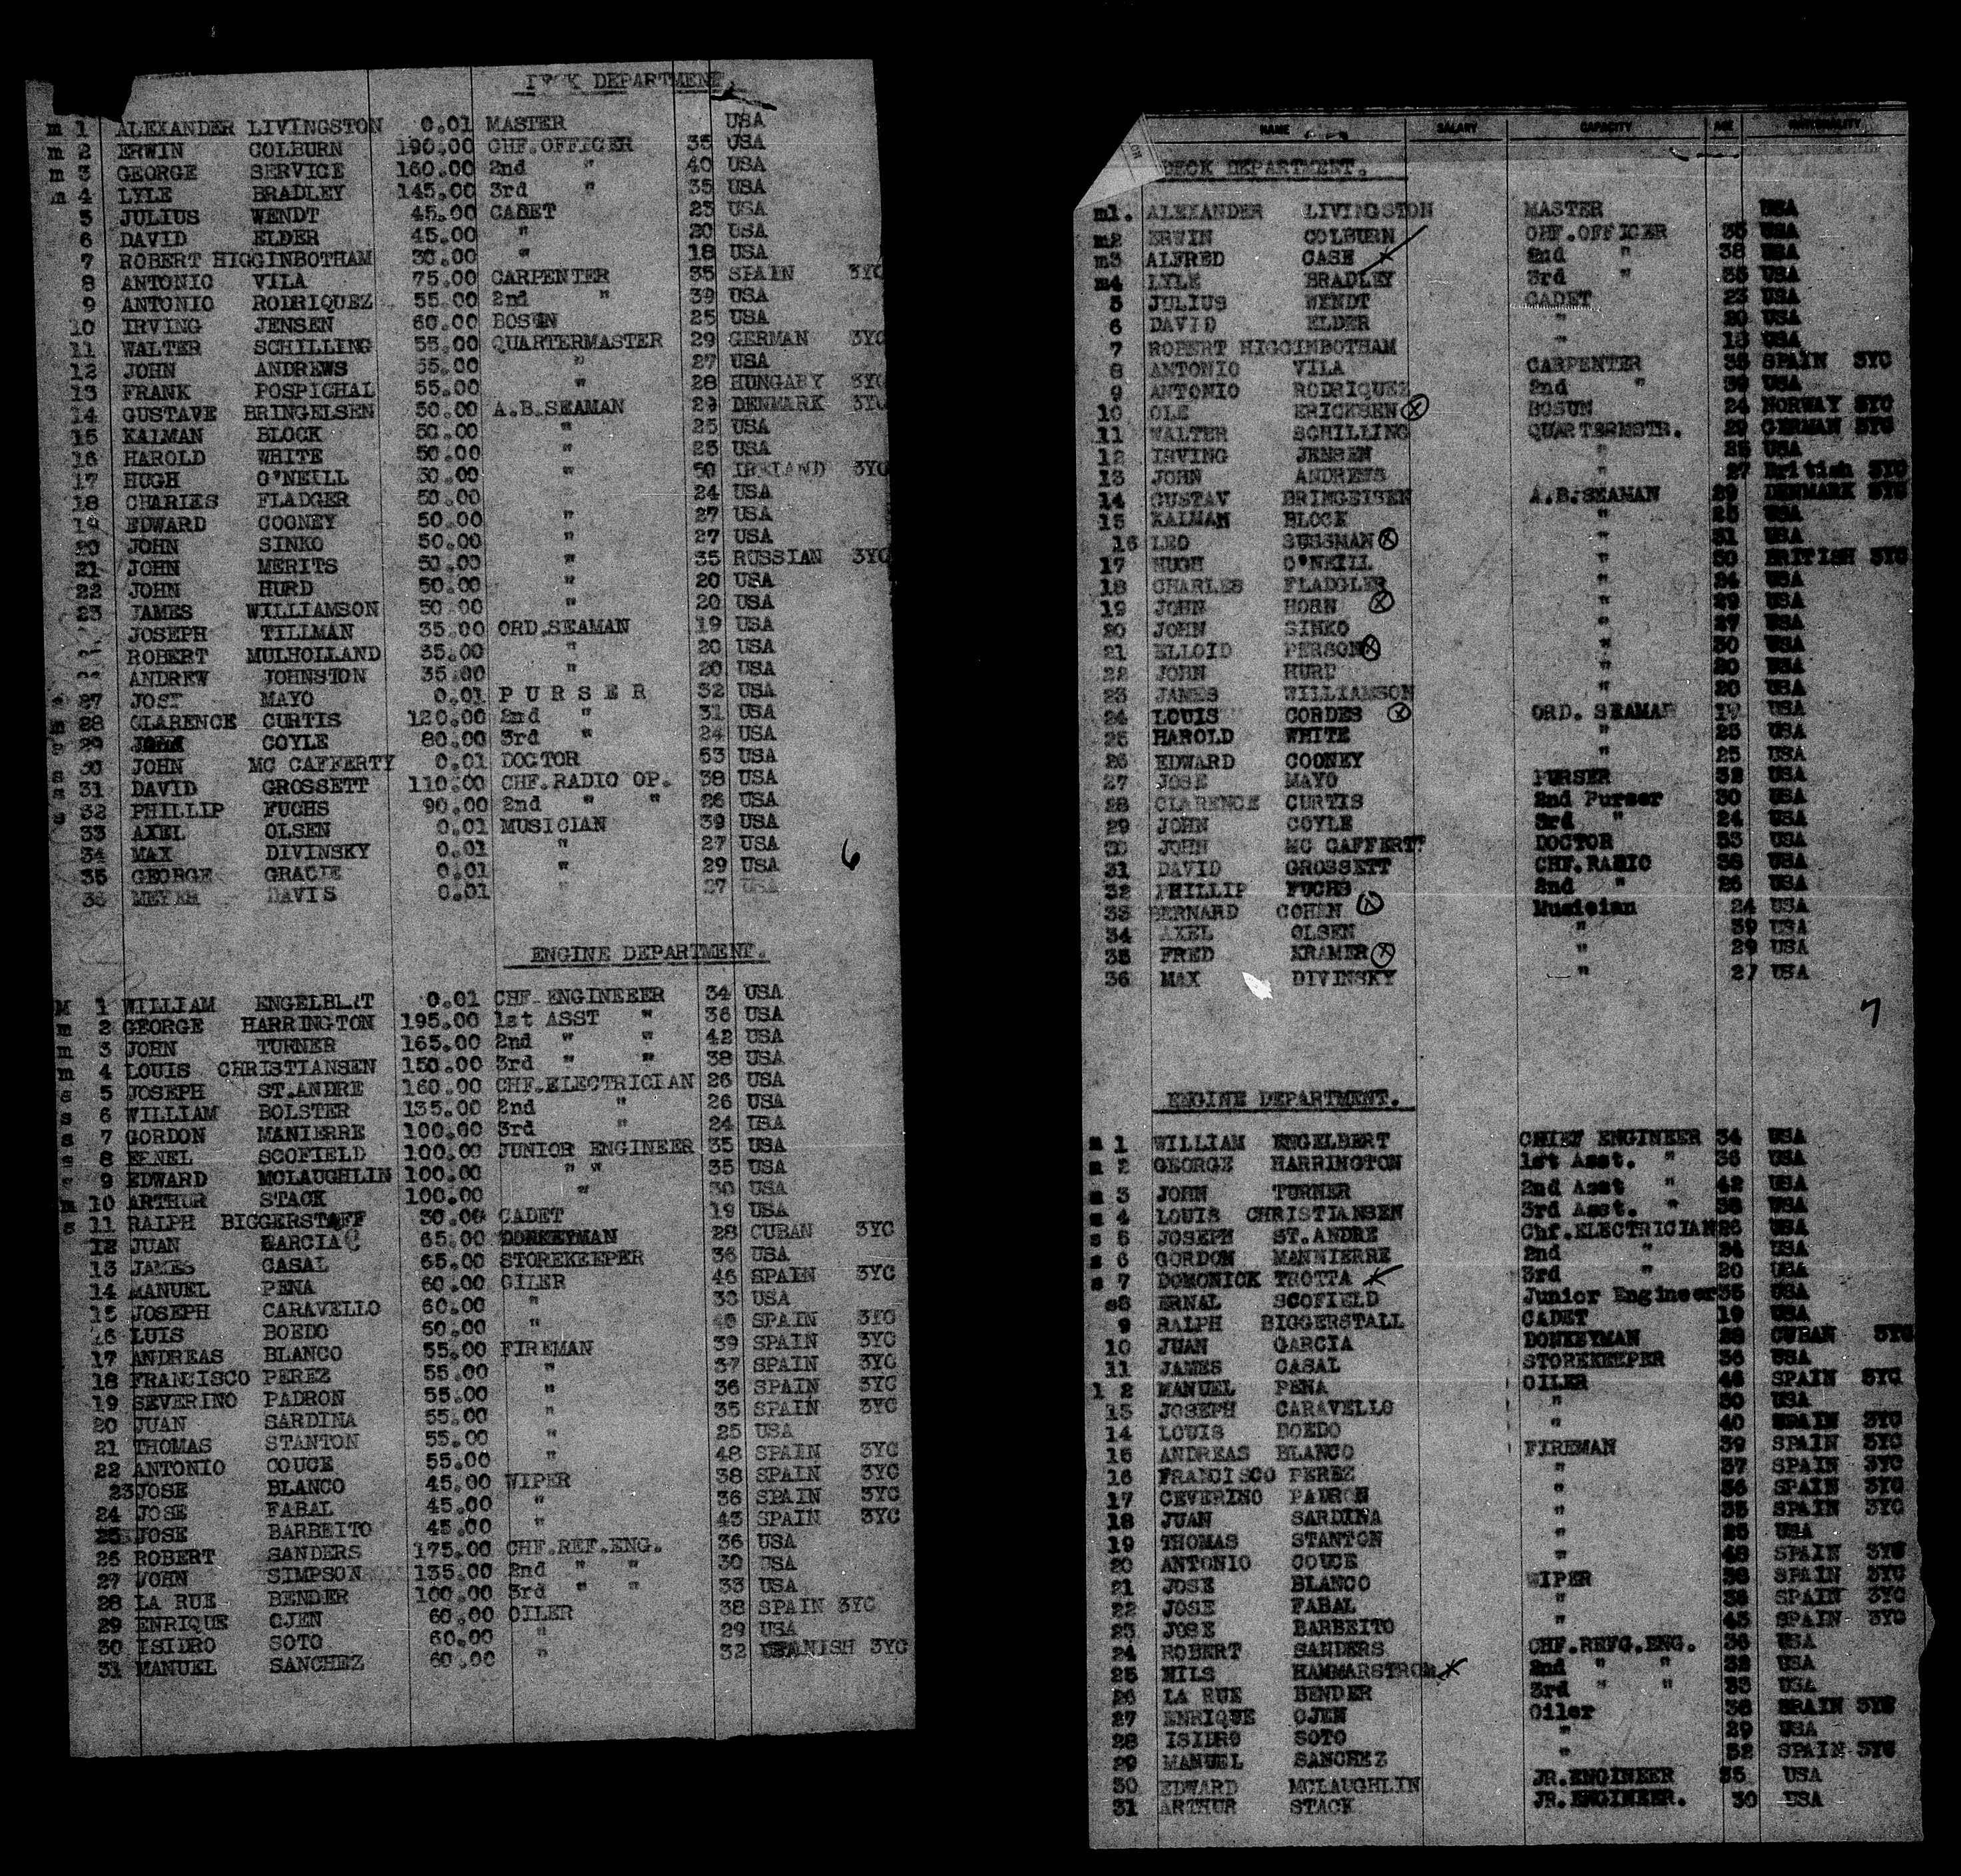 DECK DEPARTMENT.
m 1 ALEXANDER LIVINGSTON 0.01 MASTER USA
m 2 ERWIN COLBURN 190.00 CHF.OFFICER 35 USA
m 3 GEORGE SERVICE 160.00 2nd " 40 USA
m 4 LYLE BRADLEY 145.00 3rd " 35 USA
5 JULIUS WENDT 45.00 CADET 23 USA
6 DAVID ELDER 45.00 " 20 USA
7 ROBERT HIGGINBOTHAM 30.00 " 18 USA
8 ANTONIO VILA 75.00 CARPENTER 35 SPAIN 3YC
9 ANTONIO RODRIQUEZ 55.00 2nd " 39 USA
10 IRVING JENSEN 60.00 BOSUN 25 USA
11 WALTER SCHILLING 55.00 QUARTERMASTER 29 GERMAN 3YC
12 JOHN ANDREWS 55.00 " 27 USA
13 FRANK POSPICHAL 55.00 " 28 HUNGARY 3YC
14 GUSTAVE BRINGELSEN 50.00 A.B.SEAMAN 29 DENMARK 3YC
15 KALMAN BLOCK 50.00 " 25 USA
16 HAROLD WHITE 50.00 " 25 USA
17 HUGH O'NEILL 50.00 " 50 IRELAND 3YC
18 CHARLES FLADGER 50.00 24 USA
19 EDWARD COONEY 50.00 " 27 USA
20 JOHN SINKO 50.00 " 27 USA
21 JOHN MERITS 50.00 " 35 RUSSIAN 3YC
22 JOHN HURD 50.00 " 20 USA
23 JAMES WILLIAMSON 50.00 " 20 USA
JOSEPH TILLMAN 35.00 ORD.SEAMAN 19 USA
ROBERT MULHOLLAND 35.00 " 20 USA
ANDREW JOHNSTON 35.00 " 20 USA
s 27 JOSE MAYO 0.01 P U R S E R 32 USA
m 28 CLARENCE CURTIS 120.00 2nd " 31 USA
s 29 JOHN COYLE 80.00 3rd " 24 USA
s 30 JOHN MC CAFFERTY 0.01 DOCTOR 53 USA
s 31 DAVID GROSSETT 110.00 CHF.RADIO OP. 38 USA
s 32 PHILLIP FUCHS 90.00 2nd " " 26 USA
33 AXEL OLSEN 0.01 MUSICIAN 39 USA
34 MAX DIVINSKY 0.01 " 27 USA
35 GEORGE GRACIE 0.01 " 29 USA
36 MEYER DAVIS 0.01 " 27 USA
6
ENGINE DEPARTMENT.
M 1 WILLIAM ENGELBERT 0.01 CHF.ENGINEEER 34 USA
m 2 GEORGE HARRINGTON 195.00 1st ASST " 36 USA
m 3 JOHN TURNER 165.00 2nd " " 42 USA
m 4 LOUIS CHRISTIANSEN 150.00 3rd " " 38 USA
s 5 JOSEPH ST.ANDRE 160.00 CHF.ELECTRICIAN 26 USA
s 6 WILLIAM BOLSTER 135.00 2nd " 26 USA
s 7 GORDON MANIERRE 100.00 3rd " 24 USA
s 8 ERNEL SCOFIELD 100.00 JUNIOR ENGINEER 35 USA
s 9 EDWARD MCLAUGHLIN 100.00 " " 35 USA
m 10 ARTHUR STACK 100.00 " 30 USA
s 11 RALPH BIGGERSTAFF 30.00 CADET 19 USA
12 JUAN GARCIA 65.00 DONKEYMAN 28 CUBAN 3YC
13 JAMES CASAL 65.00 STOREKEEPER 36 USA
14 MANUEL PENA 60.00 OILER 46 SPAIN 3YC
15 JOSEPH CARAVELLO 60.00 " 30 USA
16 LUIS BOEDO 60.00 " 40 SPAIN 3YC
17 ANDREAS BLANCO 55.00 FIREMAN 39 SPAIN 3YC
18 FRANCISCO PEREZ 55.00 " 37 SPAIN 3YC
19 SEVERINO PADRON 55.00 " 36 SPAIN 3YC
20 JUAN SARDINA 55.00 " 35 SPAIN 3YC
21 THOMAS STANTON 55.00 " 25 USA
22 ANTONIO COUCE 55.00 " 48 SPAIN 3YC
23 JOSE BLANCO 45.00 WIPER 38 SPAIN 3YC
24 JOSE FABAL 45.00 " 36 SPAIN 3YC
25 JOSE BARBEITO 45.00 " 45 SPAIN 3YC
26 ROBERT SANDERS 175.00 CHF.REF.ENG. 36 USA
27 JOHN SIMPSON 135.00 2nd " " 30 USA
28 LA RUE BENDER 100.00 3rd " " 33 USA
29 ENRIQUE OJEN 60.00 OILER 38 SPAIN 3YC
30 ISIDRO SOTO 60.00 " 29 USA
31 MANUEL SANCHEZ 60.00 " 32 SPANISH 3YC
NAME SALARY CAPACITY AGE NATIONALITY
DECK DEPARTMENT.
m1. ALEXANDER LIVINGSTON MASTER USA
m2 ERWIN COLBURN CHF.OFFICER 35 USA
m3 ALFRED CASE 2nd " 38 USA
m4 LYLE BRADLEY 3rd " 35 USA
5 JULIUS WENDT CADET 23 USA
6 DAVID ELDER " 20 USA
7 ROBERT HIGGINBOTHAM " 18 USA
8 ANTONIO VILA CARPENTER 35 SPAIN 3YC
9 ANTONIO RODRIQUEZ 2nd " 39 USA
10 OLE ERICKSEN BOSUN 24 NORWAY 3YC
11 WALTER SCHILLING QUARTERMSTR. 29 GERMAN 3YC
12 IRVING JENSEN " 25 USA
13 JOHN ANDREWS " 27 British 3YC
14 GUSTAV BRINGEISEN A.B.SEAMAN 29 DENMARK 3YC
15 KALMAN BLOCK " 25 USA
16 LEO SUSSMAN " 31 USA
17 HUGH O'NEILL " 50 BRITISH 3YC
18 CHARLES FLADGLER " 24 USA
19 JOHN HORN " 29 USA
20 JOHN SINKO " 27 USA
21 ELLOID PERSON " 30 USA
22 JOHN HURD " 20 USA
23 JAMES WILLIAMSON " 20 USA
24 LOUIS CORDES ORD. SEAMAN 19 USA
25 HAROLD WHITE " 25 USA
26 EDWARD COONEY " 25 USA
27 JOSE MAYO PURSER 32 USA
28 CLARENCE CURTIS 2nd Purser 30 USA
29 JOHN COYLE 3rd " 24 USA
30 JOHN MC CAFFERTY DOCTOR 53 USA
31 DAVID GROSSETT CHF.RADIO 38 USA
32 PHILLIP FUCHS 2nd " 26 USA
33 BERNARD COHEN Musician 24 USA
34 AXEL OLSEN " 39 USA
35 FRED KRAMER " 29 USA
36 MAX DIVINSKY " 27 USA
7
ENGINE DEPARTMENT.
m 1 WILLIAM ENGELBERT CHIEF ENGINEER 34 USA
m 2 GEORGE HARRINGTON 1st Asst. " 36 USA
m 3 JOHN TURNER 2nd Asst " 42 USA
m 4 LOUIS CHRISTIANSEN 3rd Asst. " 38 USA
s 5 JOSEPH ST.ANDRE Chf.ELECTRICIAN 26 USA
s 6 GORDON MANNIERRE 2nd " 24 USA
s 7 DOMONICK TROTTA 3rd " 20 USA
s8 ERNAL SCOFIELD Junior Engineer 35 USA
9 RALPH BIGGERSTALL CADET 19 USA
10 JUAN GARCIA DONKEYMAN 28 CUBAN 3YC
11 JAMES CASAL STOREKEEPER 36 USA
1 2 MANUEL PENA OILER 46 SPAIN 3YC
13 JOSEPH CARAVELLO " 30 USA
14 LOUIS BOEDO " 40 SPAIN 3YC
15 ANDREAS BLANCO FIREMAN 39 SPAIN 3YC
16 FRANCISCO PEREZ " 37 SPAIN 3YC
17 CEVERINO PADRON " 36 SPAIN 3YC
18 JUAN SARDINA " 35 SPAIN 3YC
19 THOMAS STANTON " 25 USA
20 ANTONIO COUCE " 48 SPAIN 3YC
21 JOSE BLANCO WIPER 38 SPAIN 3YC
22 JOSE FABAL " 36 SPAIN 3YC
23 JOSE BARBEITO " 45 SPAIN 3YC
24 ROBERT SANDERS CHF.REFG.ENG. 36 USA
25 NILS HAMMARSTROM 2nd " " 32 USA
26 LA RUE BENDER 3rd " " 33 USA
27 ENRIQUE OJEN Oiler 38 SPAIN 3YC
28 ISIDRO SOTO " 29 USA
29 MANUEL SANCHEZ " 32 SPAIN 3YC
30 EDWARD MCLAUGHLIN JR.ENGINEER 35 USA
31 ARTHUR STACK JR.ENGINEER. 30 USA